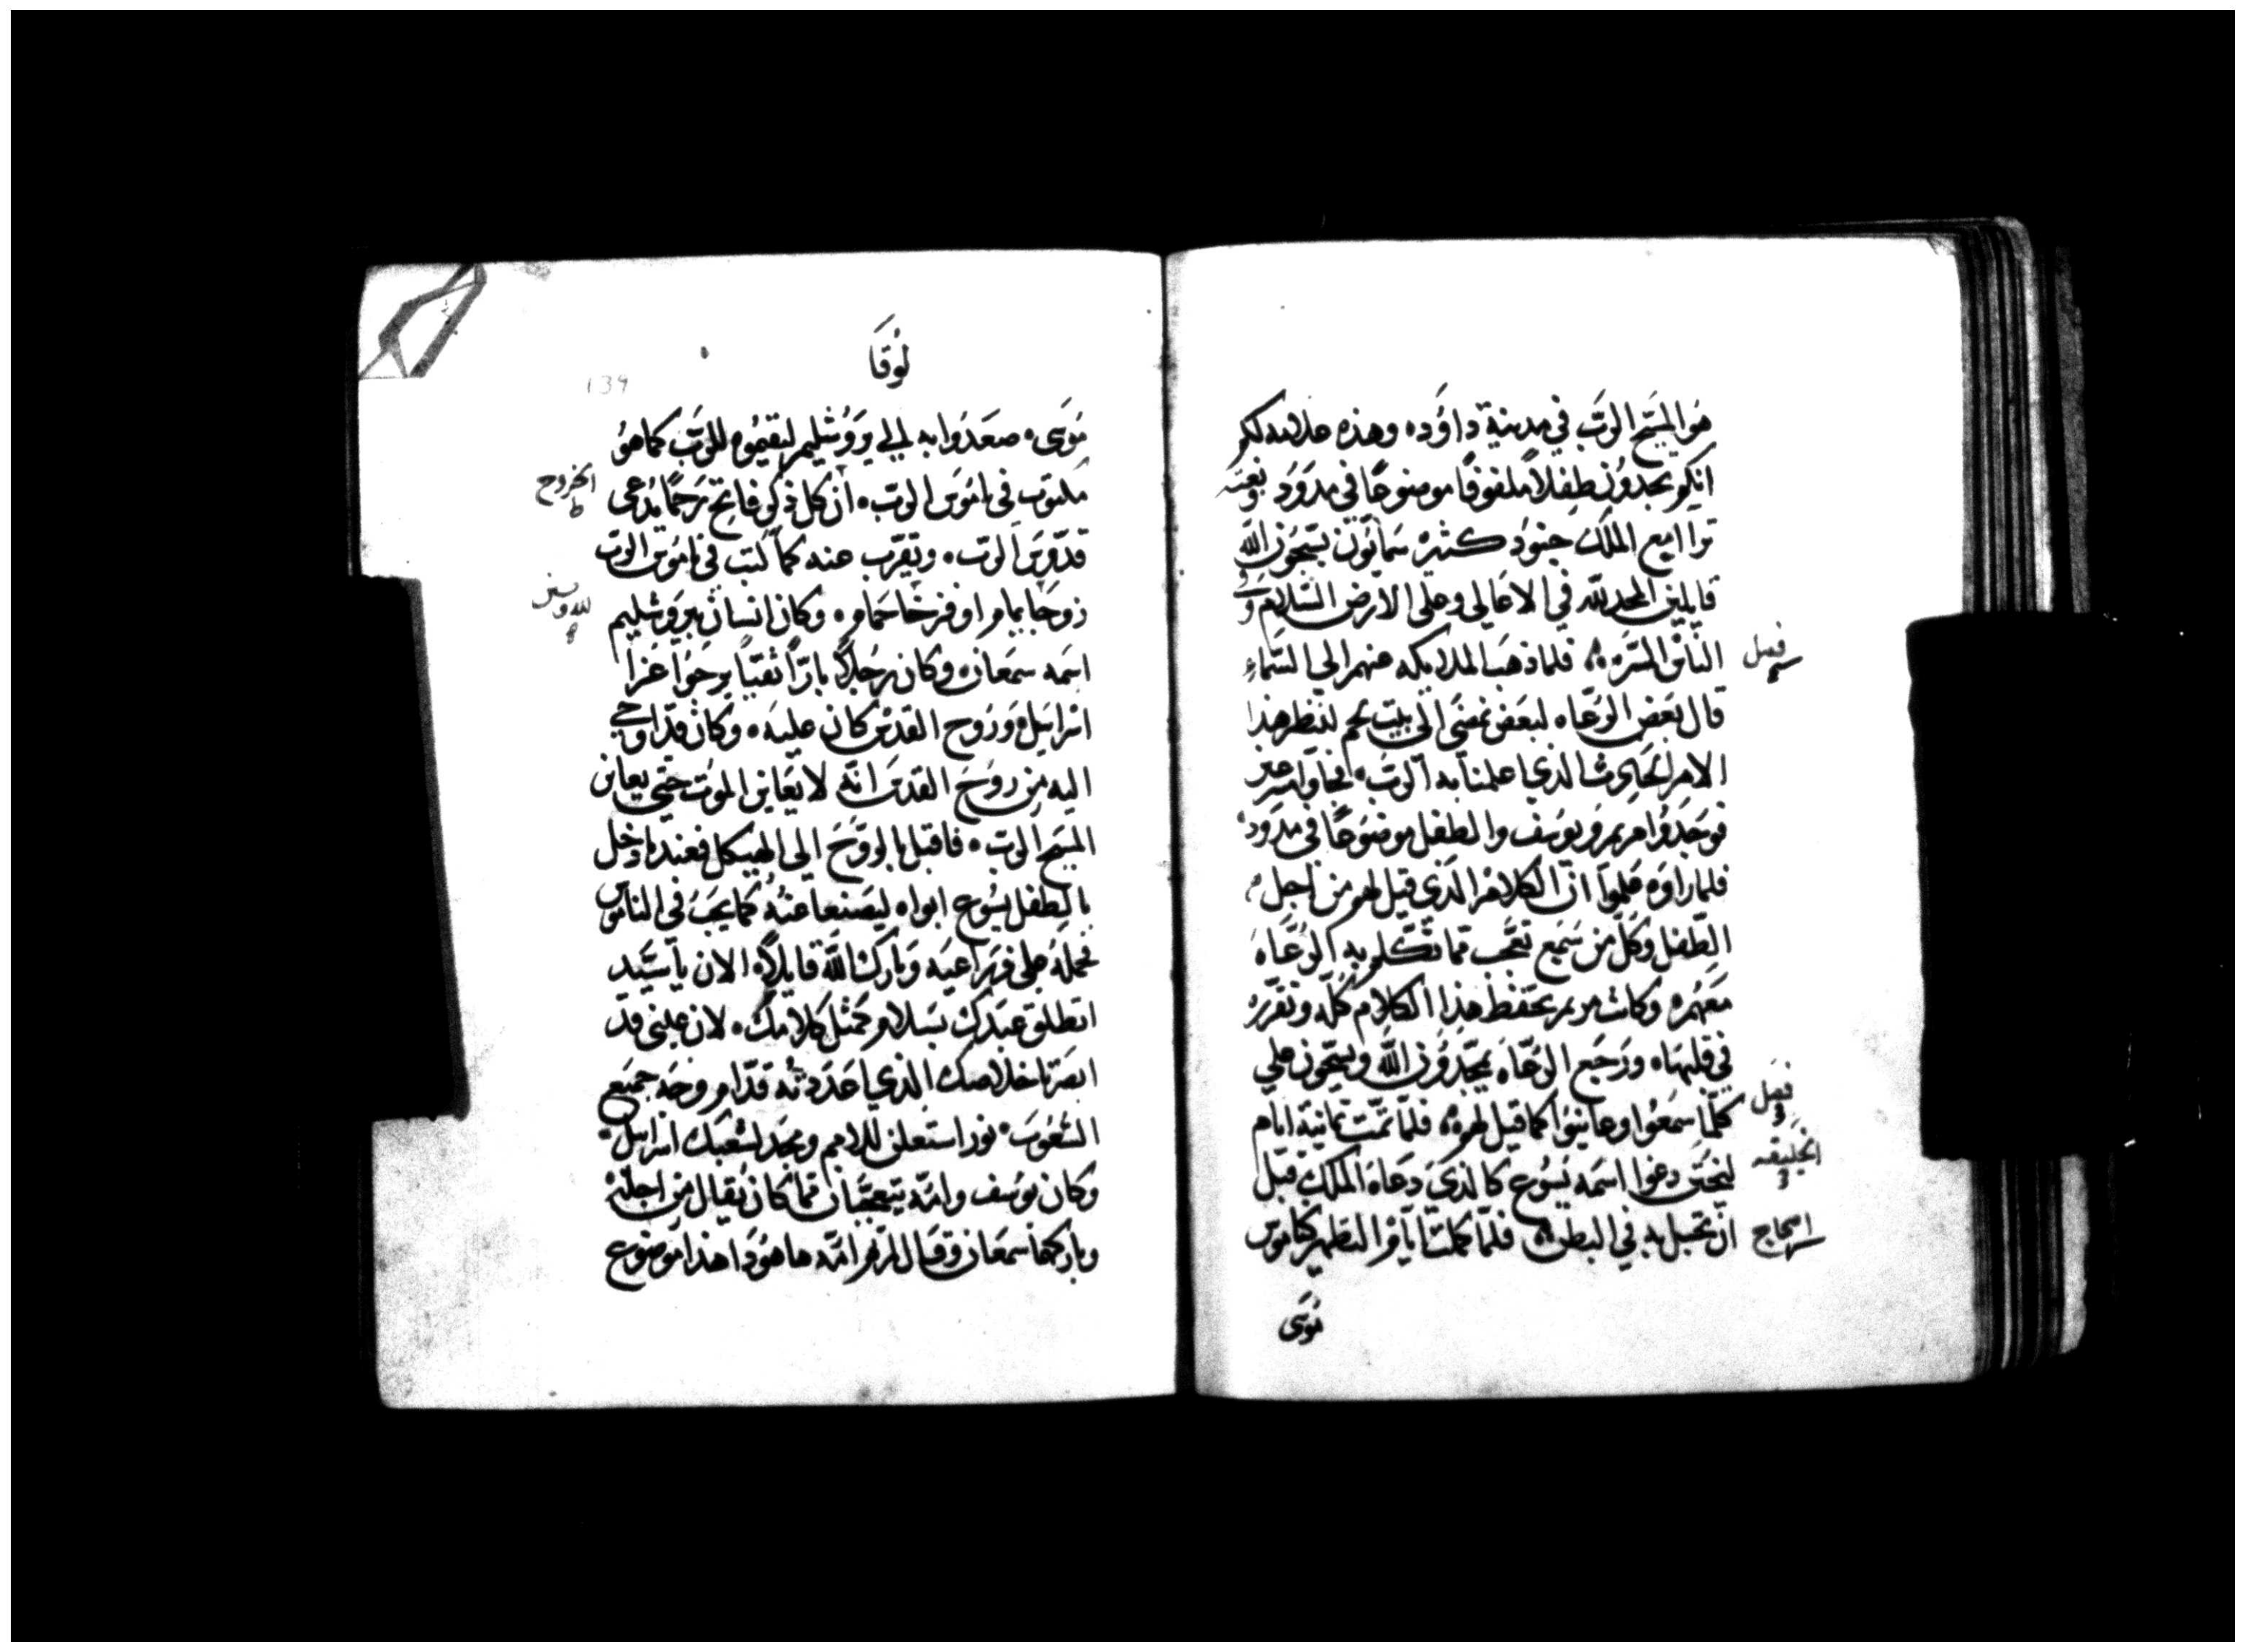 هو المسيح الرب في مدينة داوود وهذه علامه لكم
انكم تجدون طفلاً ملفوفًا موضوعًا في مدود وبغتة
ترا امع الملك جنود كثيره سمائون يسبحون الله
قايلين المجد لله في الاعالي وعلى الارض السلام وفي
الناس المسره فلما ذهب الملايكه عنهم الى السماء
قال بعض الرعاه لبعض نمضي الى بيت لحم لننظر هذا
الامر الحادث الذي اعلمنا به الرب فجاوا مسرعين
فوجدوا مريم ويوسف والطفل موضوعًا في مدود
فلما راوه علموا ان الكلام الذي قيل لهم من اجل
الطفل وكل من سمع تعجب مما تكلم به الرعاه
معهم وكانت مريم تحفظ هذا الكلام كله وتقرره
في قلبها ورجع الرعاه يمجدون الله ويسبحون علي
كلما سمعوا وعاينوا كما قيل لهم فلما تمت ثمانية ايام
ليختتن دعوا اسمه يسوع كالذي دعاه الملك قبل
ان تحبل به في البطن فلما كملت ايام التطهير كناموس
موسى
فصل
فصل
3
الخليقه
3
لوقا
139
موسى صعدوا به الي يروشليم ليقيموه للرب كما هو
مكتوب في ناموس الرب ان كل ذكر فاتح رحمًا يدعى
قدوس الرب ويقرب عنه كما كتب في ناموس الرب
زوجا يمام او فرخا حمام وكان انسان بيروشليم
اسمه سمعان وكان رجلاً بارًا تقيًا يرجوا عزا
اسراييل وروح القدس كان عليه وكان قد اوحي
اليه من روح القدس انه لا يعاين الموت حتى يعاين
المسيح الرب فاقبل بالروح الى الهيكل فعندما دخل
بالطفل يسوع ابواه ليصنعا عنه كما يجب في الناموس
فحمله على ذراعيه وبارك الله قايلاً الان يا سيد
اتطلق عبدك بسلام كمثل كلامك لان عيني قد
ابصرتا خلاصك الذي اعددته قدام وجه جميع
الشعوب نور استعلن للامم ومجد لشعبك اسراييل
وكان يوسف وامه يتعجبان مما كان يقال من اجله
وباركهما سمعان وقال لمريم امه ها هوذا هذا موضوع
الخروج